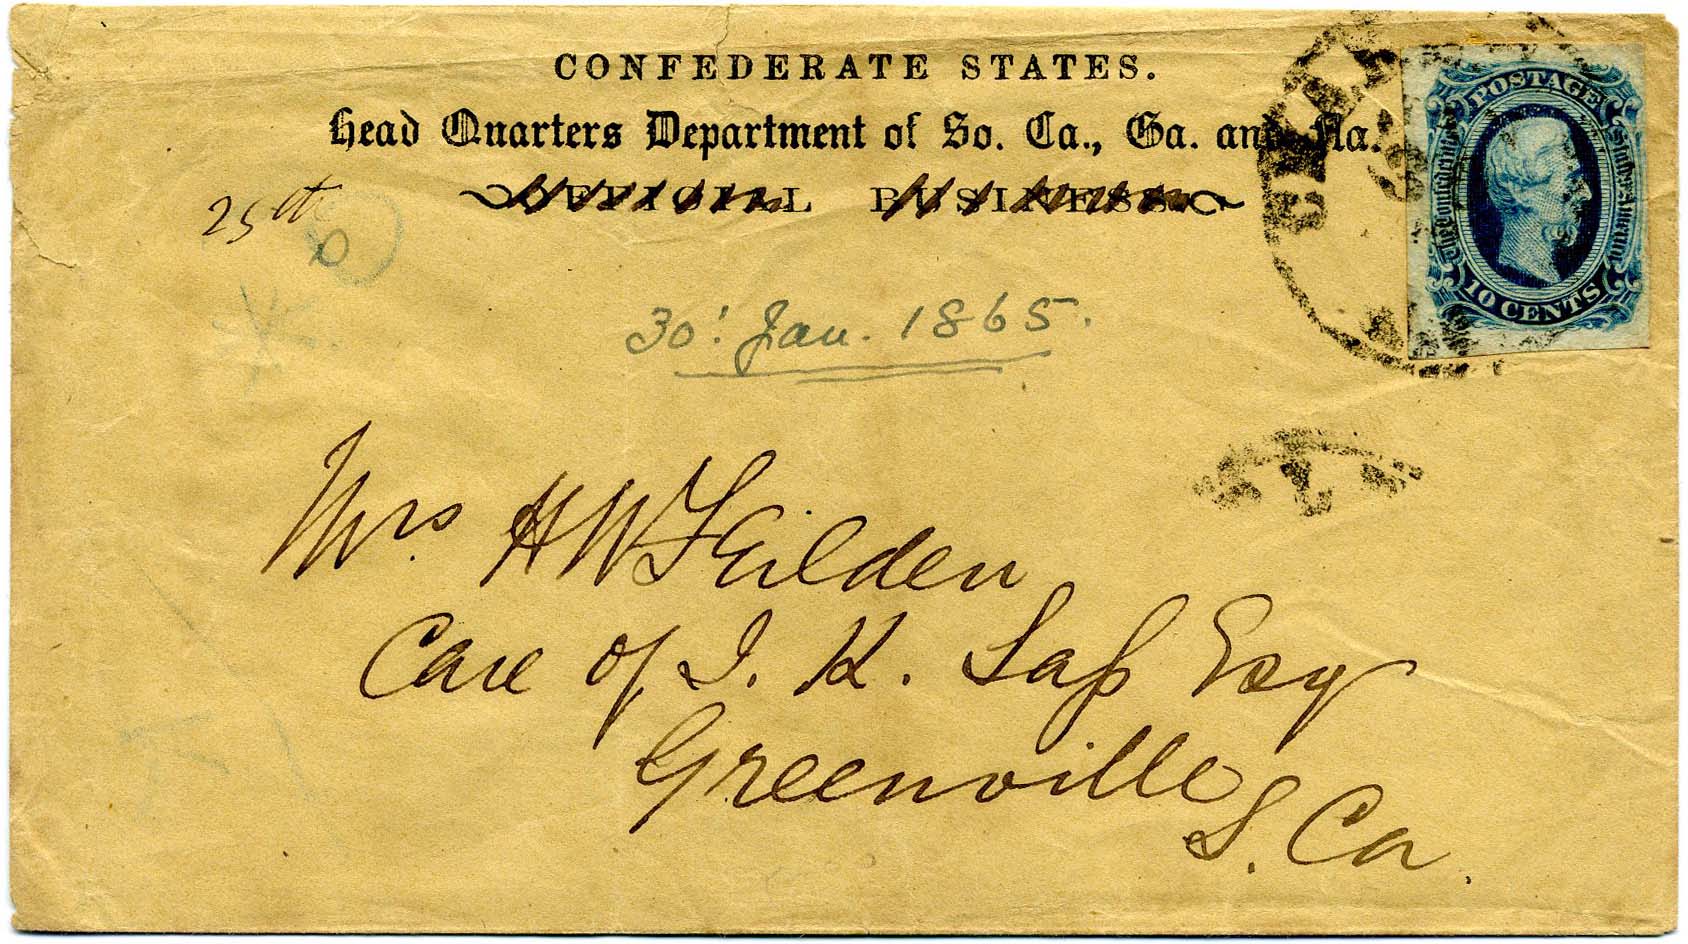 CONFEDERATE STATES.
Head Quarters Department of So. Ca., Ga. and Fla.
OFFICIAL BUSINESS.
25th
30! Jan. 1865.
POSTAGE
The Confederate States of America
10 CENTS
Mrs. H W Feilden
Care of I. K. Saſs Esq
Greenville
S. Ca.